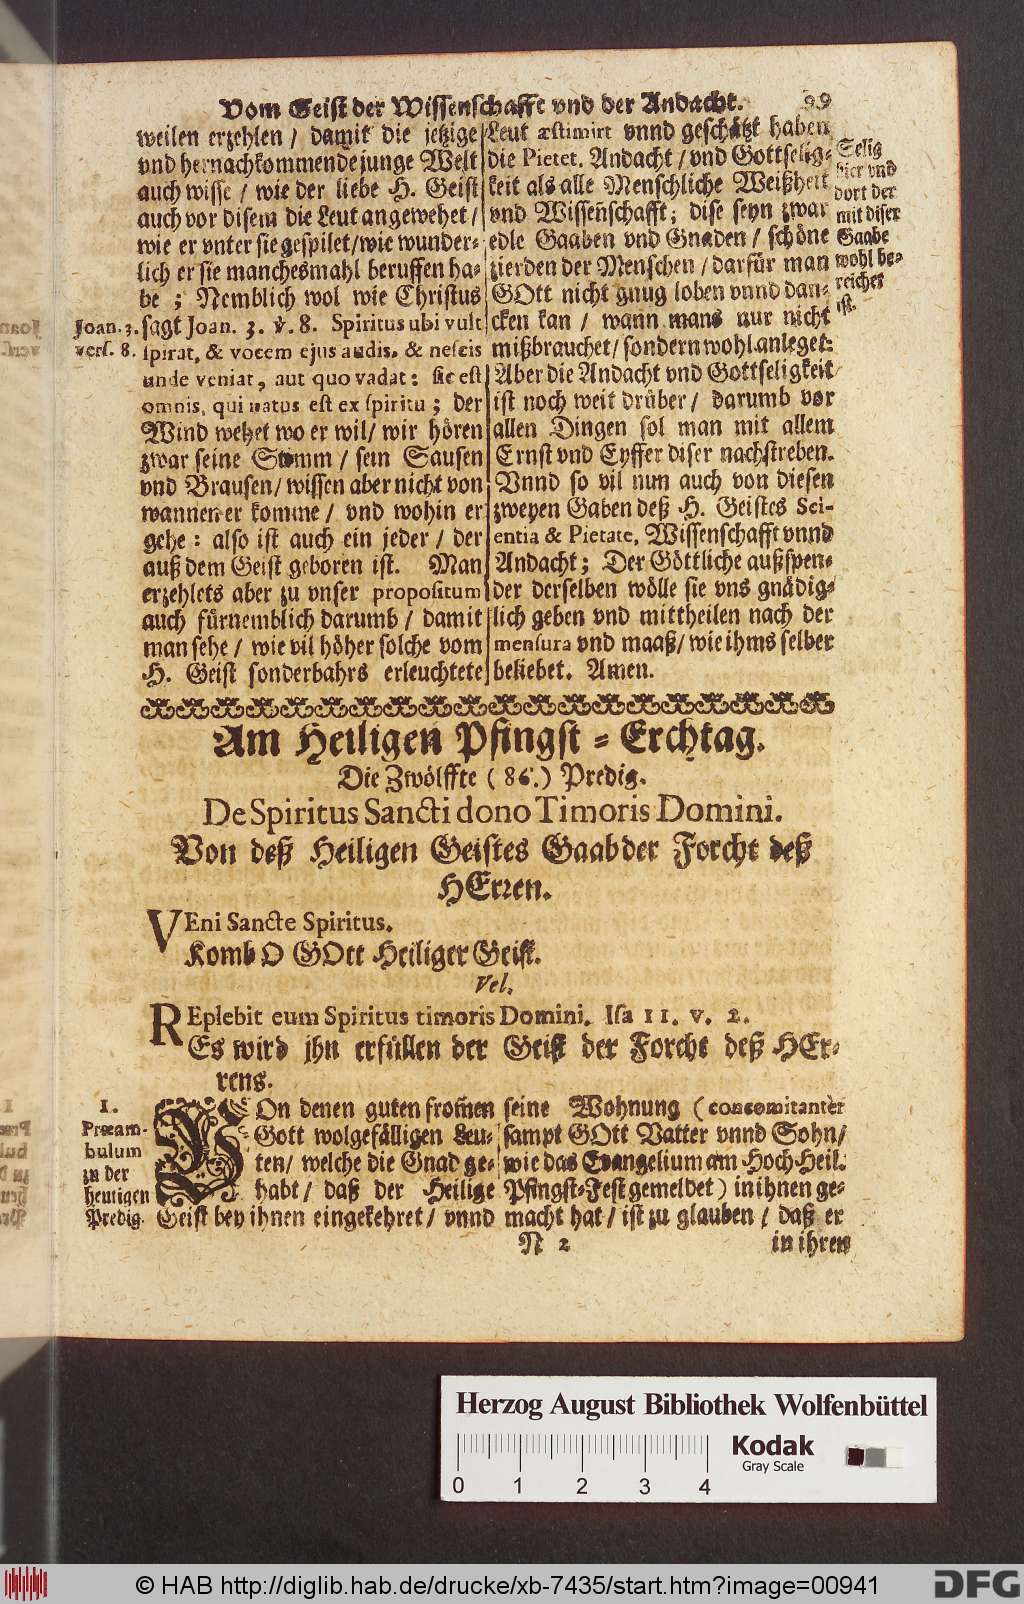 Vom Geist der Wissenschafft vnd der Andacht. 99
weilen erzehlen / damit die jetzige
vnd hernachkommende junge Welt
auch wisse / wie der liebe H. Geist
auch vor disem die Leut angewehet /
wie er vnter sie gespilet / wie wunder-
lich er sie manchesmahl beruffen ha-
be ; Nemblich wol wie Christus
Joan. 3. vers. 8.
sagt Joan. 3. v. 8. Spiritus ubi vult
spirat, & vocem ejus audis, & nescis
unde veniat, aut quo vadat : sic est
omnis, qui natus est ex spiritu ; der
Wind wehet wo er wil / wir hören
zwar seine Stimm / sein Sausen
vnd Brausen / wissen aber nicht von
wannen er komme / vnd wohin er
gehe : also ist auch ein jeder / der
auß dem Geist geboren ist. Man
erzehlets aber zu vnser propositum
auch fürnemblich darumb / damit
man sehe / wie vil höher solche vom
H. Geist sonderbahrs erleuchtete
Leut æstimirt vnnd geschätzt haben
die Pietet, Andacht / vnd Gottselig-
keit als alle Menschliche Weißheit
vnd Wissenschafft ; dise seyn zwar
edle Gaaben vnd Gnaden / schöne
zierden der Menschen / darfür man
GOtt nicht gnug loben vnnd dan-
cken kan / wann mans nur nicht
mißbrauchet / sondern wohl anleget:
Aber die Andacht vnd Gottseligkeit
ist noch weit drüber / darumb vor
allen Dingen sol man mit allem
Ernst vnd Eyffer diser nachstreben.
Vnnd so vil nun auch von diesen
zweyen Gaben deß H. Geistes Sci-
entia & Pietate, Wissenschafft vnnd
Andacht ; Der Göttliche außspen-
der derselben wölle sie vns gnädig-
lich geben vnd mittheilen nach der
mensura vnd maaß / wie ihms selber
beliebet. Amen.
Selig
hier vnd
dort der
mit diser
Gaabe
wohl be-
reichet
ist.
Am Heiligen Pfingst-Erchtag.
Die Zwölffte ( 86. ) Predig.
De Spiritus Sancti dono Timoris Domini.
Von deß Heiligen Geistes Gaab der Forcht deß
HErren.
VEni Sancte Spiritus.
Komb O GOtt Heiliger Geist.
Vel.
REplebit eum Spiritus timoris Domini. Isa 11. v. 2.
Es wird jhn erfüllen der Geist der Forcht deß HEr-
rens.
1.
Præam-
bulum
zu der
heutigen
Predig.
VOn denen guten from̃en
Gott wolgefälligen Leu-
ten / welche die Gnad ge-
habt / daß der Heilige
Geist bey ihnen eingekehret / vnnd
seine Wohnung ( concomitanter
sampt GOtt Vatter vnnd Sohn /
wie das Evangelium am Hoch-Heil.
Pfingst-Fest gemeldet ) in ihnen ge-
macht hat / ist zu glauben / daß er
N 2
in ihren
Herzog August Bibliothek Wolfenbüttel
Kodak
Gray Scale
0 1 2 3 4
© HAB http://diglib.hab.de/drucke/xb-7435/start.htm?image=00941
DFG